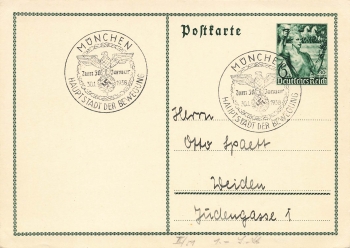 MÜNCHEN
Zum 30. Januar
30.1. 1938
HAUPTSTADT DER BEWEGUNG
Postkarte
MÜNCHEN
Zum 30. Januar
30.1. 1938
HAUPTSTADT DER BEWEGUNG
Deutsches Reich
Herrn
Otto Spaett
Weiden
Judengasse 1